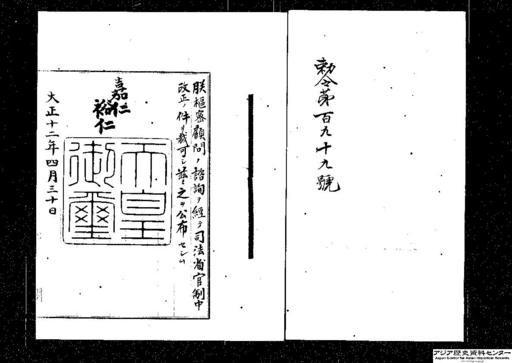 勅令第百九十九號
朕樞密顧問ノ諮詢ヲ經テ司法省官制中
改正ノ件ヲ裁可シ茲ニ之ヲ公布セシム
嘉仁
裕仁
天皇
御璽
大正十二年四月三十日
アジア歴史資料センター
Japan Center for Asian Historical Records